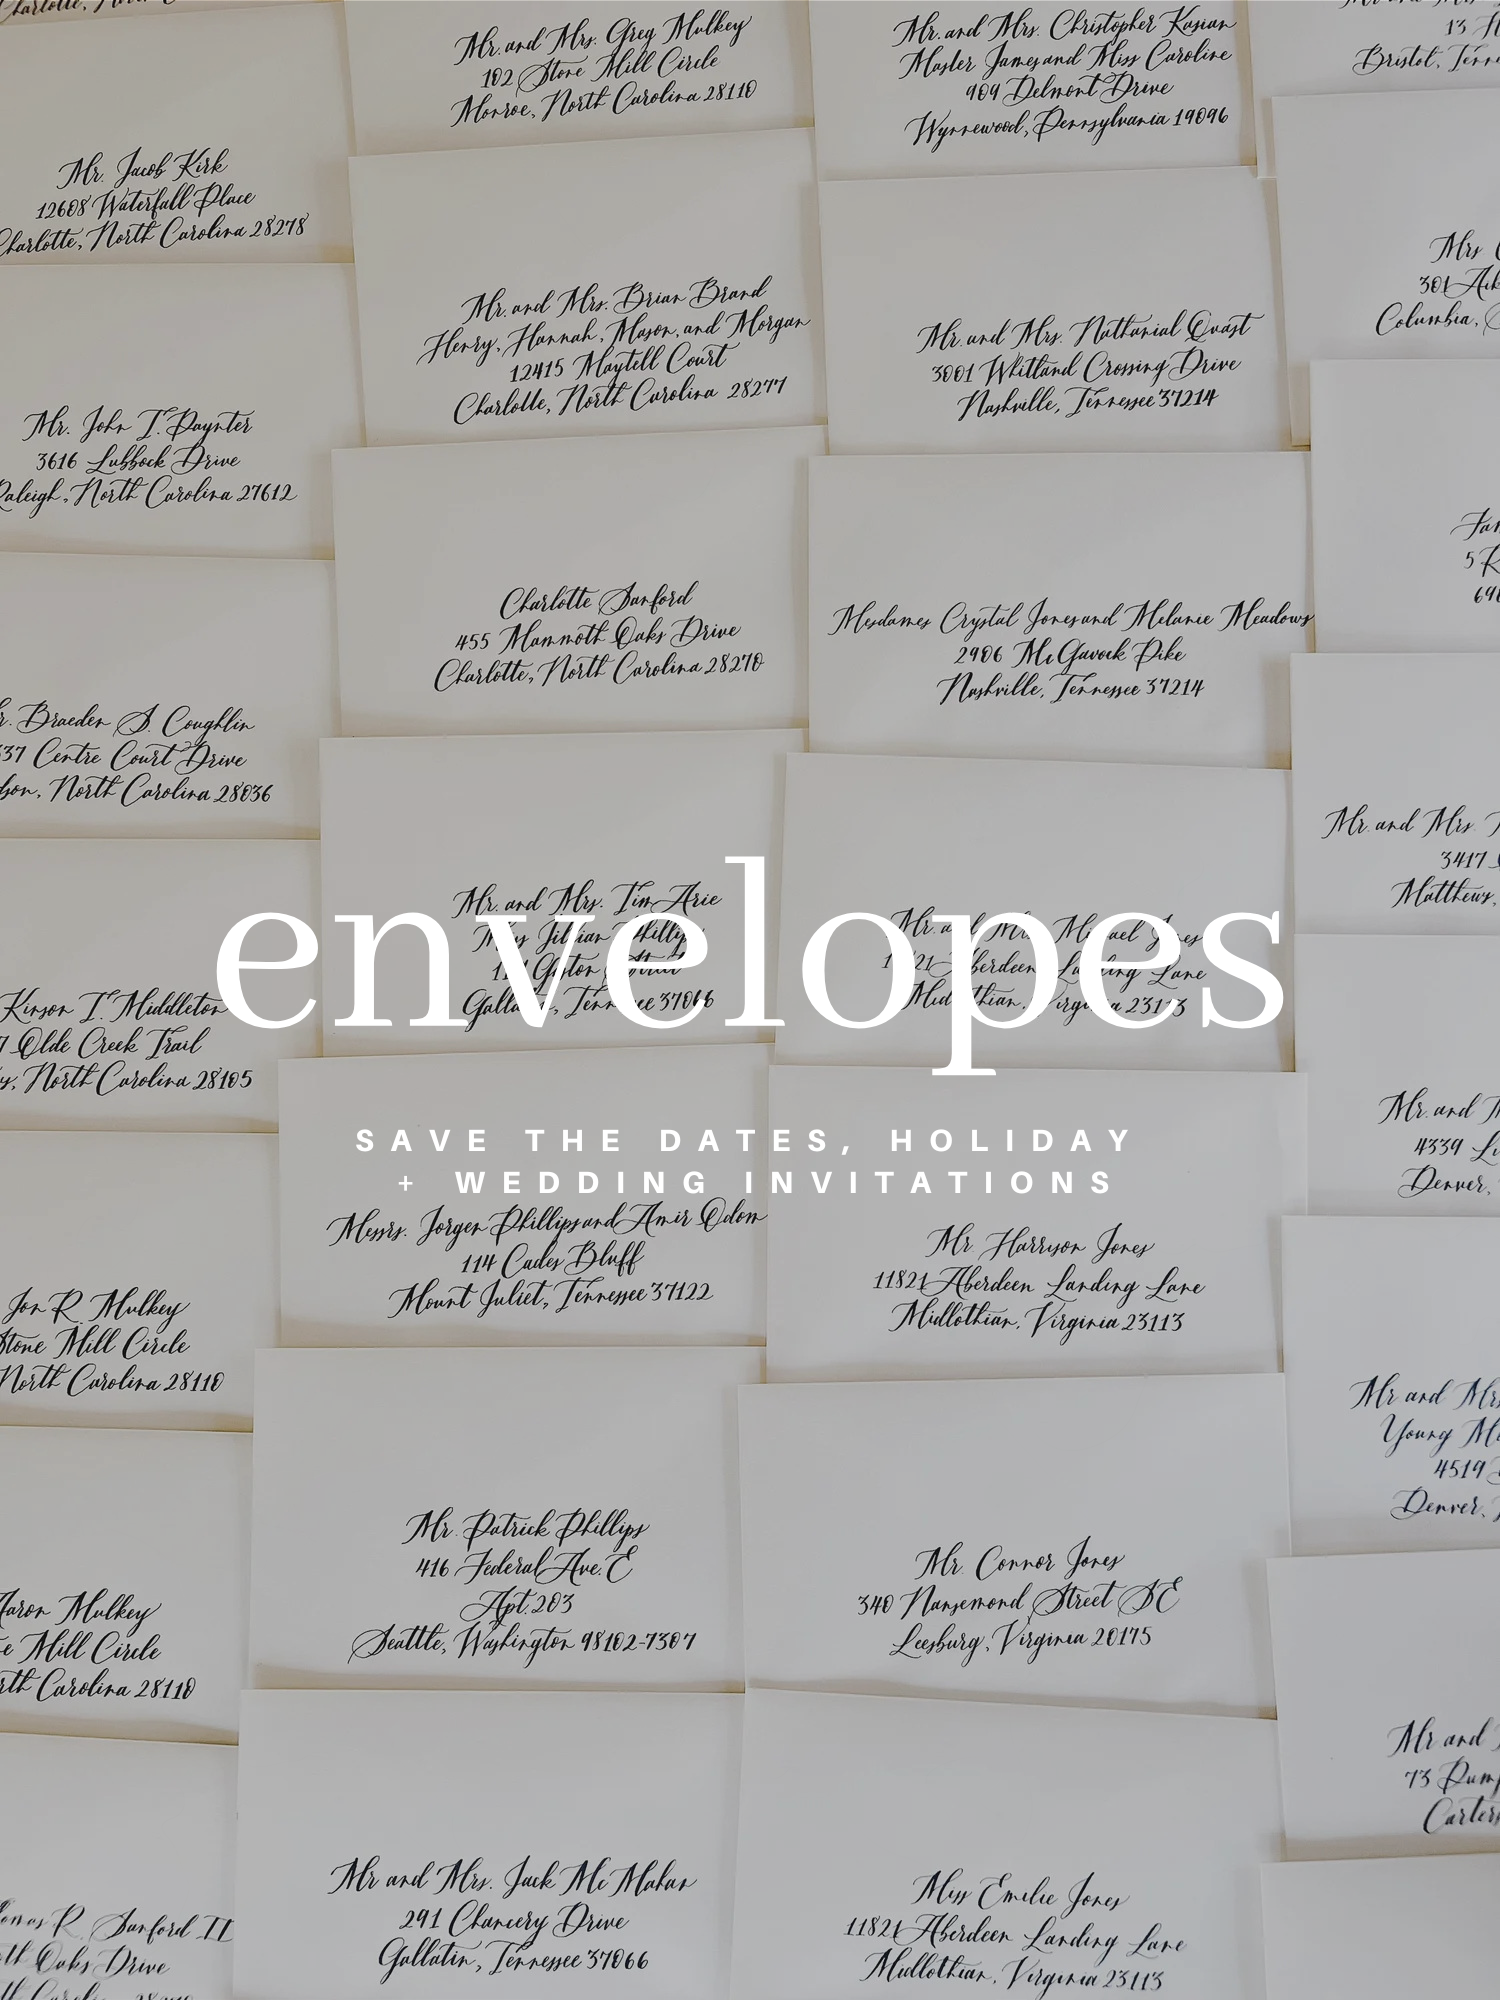 Mr. Jacob Kirk
12608 Waterfall Place
Charlotte, North Carolina 28278
Mr. John T. Paynter
3616 Lubbock Drive
Raleigh, North Carolina 27612
Braeden S. Coughlin
Centre Court Drive
North Carolina 28036
Kinson T. Middleton
Olde Creek Trail
North Carolina 28105
Jon R. Mulkey
Stone Mill Circle
North Carolina 28110
Aaron Mulkey
Mill Circle
Carolina 28110
R. Sanford II
Oaks Drive
Mr. and Mrs. Greg Mulkey
102 Stone Mill Circle
Monroe, North Carolina 28110
Mr. and Mrs. Brian Brand
Henry, Hannah, Mason, and Morgan
12415 Maytell Court
Charlotte, North Carolina 28277
Charlotte Sanford
455 Mammoth Oaks Drive
Charlotte, North Carolina 28270
Mr. and Mrs. Tim Arie
Miss Jillian Phillips
Gallatin, Tennessee 37066
envelopes
SAVE THE DATES, HOLIDAY
+ WEDDING INVITATIONS
Messrs. Jorgen Phillips and Amir Odom
114 Cades Bluff
Mount Juliet, Tennessee 37122
Mr. Patrick Phillips
416 Federal Ave. E
Apt. 203
Seattle, Washington 98102-7307
Mr and Mrs. Jack McMahan
291 Chancery Drive
Gallatin, Tennessee 37066
Mr. and Mrs. Christopher Kasian
Master James and Miss Caroline
909 Delmont Drive
Wynnewood, Pennsylvania 19096
Mr. and Mrs. Nathanial Quast
3001 Whitland Crossing Drive
Nashville, Tennessee 37214
Mesdames Crystal Jones and Melanie Meadows
2906 McGavock Pike
Nashville, Tennessee 37214
Mr. and Mrs. Michael Jones
11821 Aberdeen Landing Lane
Midlothian, Virginia 23113
Mr. Harrison Jones
11821 Aberdeen Landing Lane
Midlothian, Virginia 23113
Mr. Connor Jones
340 Nansemond Street SE
Leesburg, Virginia 20175
Miss Emilie Jones
11821 Aberdeen Landing Lane
Midlothian, Virginia 23113
13
Bristol,
Mrs
301
Columbia,
5
Mr. and Mrs.
3417
Matthews,
Mr. and
4339
Denver,
Mr and Mrs
Young
4519
Denver,
Mr and
73